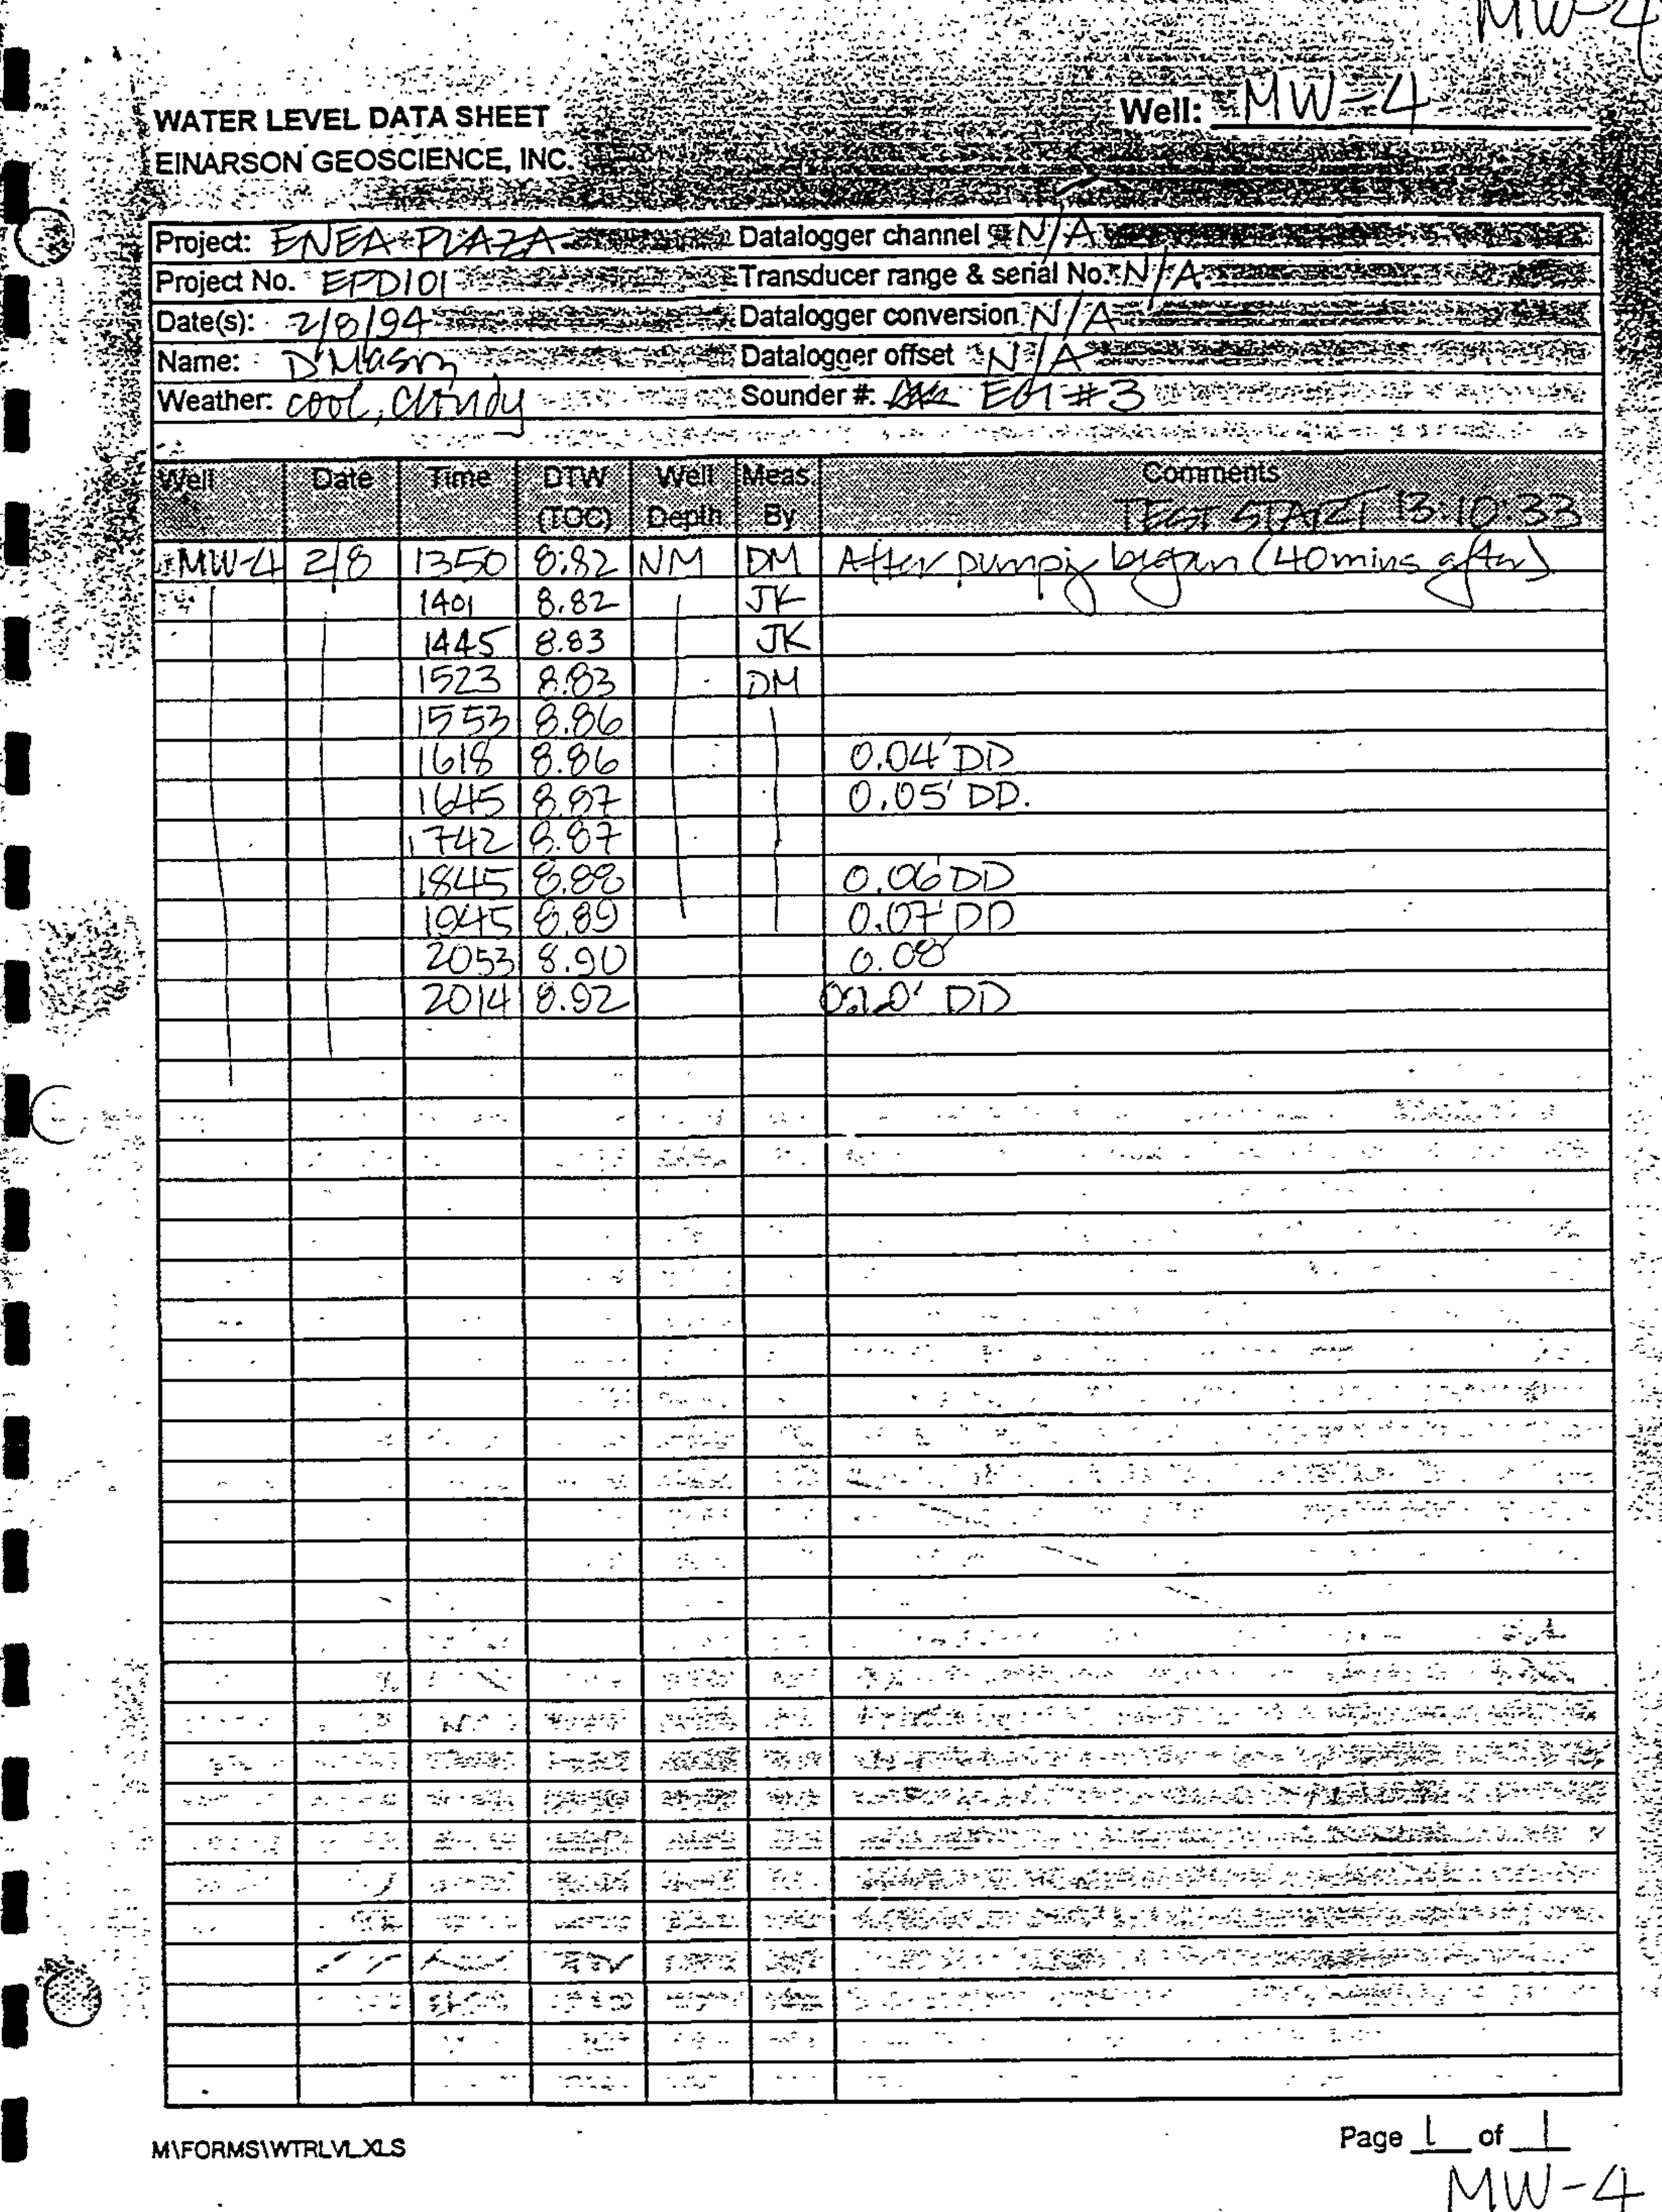 MW-4
Well: MW-4
WATER LEVEL DATA SHEET
EINARSON GEOSCIENCE, INC.
Project: ENEA PLAZA Datalogger channel N/A
Project No. EPD101 Transducer range & serial No. N/A
Date(s): 2/8/94 Datalogger conversion N/A
Name: D Mason Datalogger offset N/A
Weather: cool, cloudy Sounder #: EGI #3
Well Date Time DTW (TOC) Well Depth Meas. By Comments
TEST START 13:10:33
MW-4 2/8 1350 8.82 NM DM After pumpig began (40 mins after)
1401 8.82 JK
1445 8.83 JK
1523 8.83 DM
1553 8.86
1618 8.86 0.04' DD
1645 8.87 0.05' DD.
1742 8.87
1845 8.88 0.06 DD
1945 8.89 0.07' DD
2053 8.90 0.08'
2014 8.92 0.10' DD
M\FORMS\WTRLVL.XLS
Page 1 of 1
MW-4